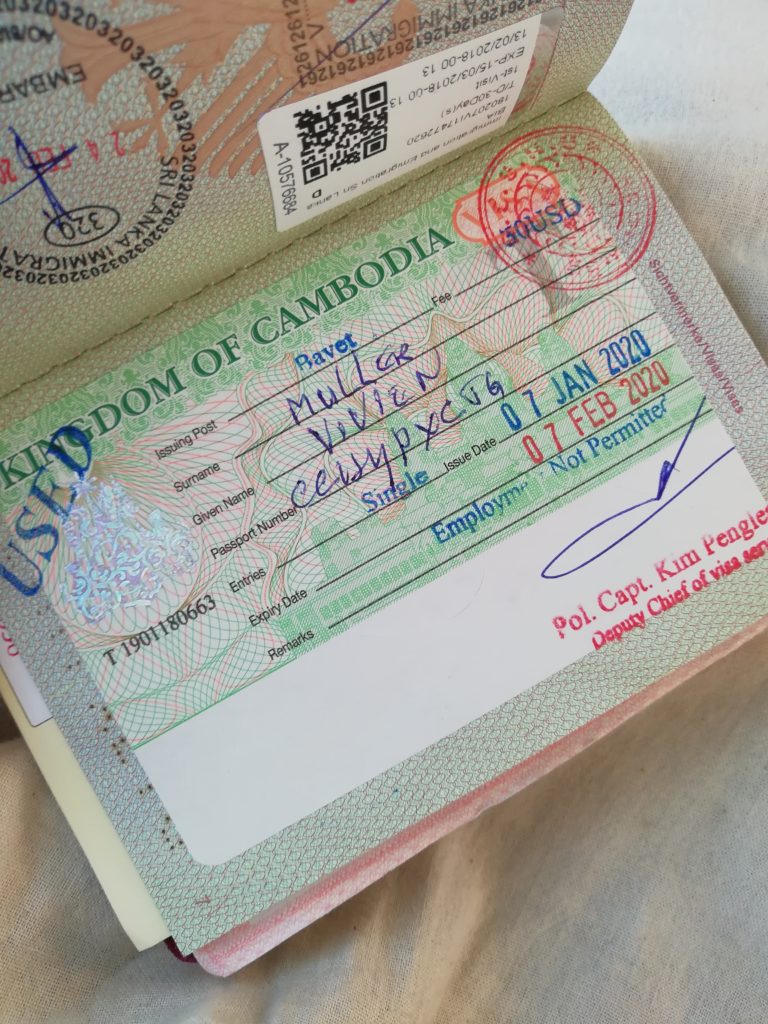 EMBAR
SRI LANKA IMMIGRAT
320
KA IMMIGRATION
Immigration and Emigration Sri Lanka
BIA
T/D-30Day(s)
1st-Visit
EXP-15/03/2018-00 13
13/02/2018-00 13
A-10576684
KINGDOM OF CAMBODIA
Issuing Post Bavet Fee 30USD
Surname MULLER
Given Name VIVIEN
Passport Number
Entries Single Issue Date 07 JAN 2020
Expiry Date 07 FEB 2020
Remarks Employm Not Permitted
USED
T 1901180663
Pol. Capt. Kim
Deputy Chief of visa ser
Sichtvermerke/Visas/Visas